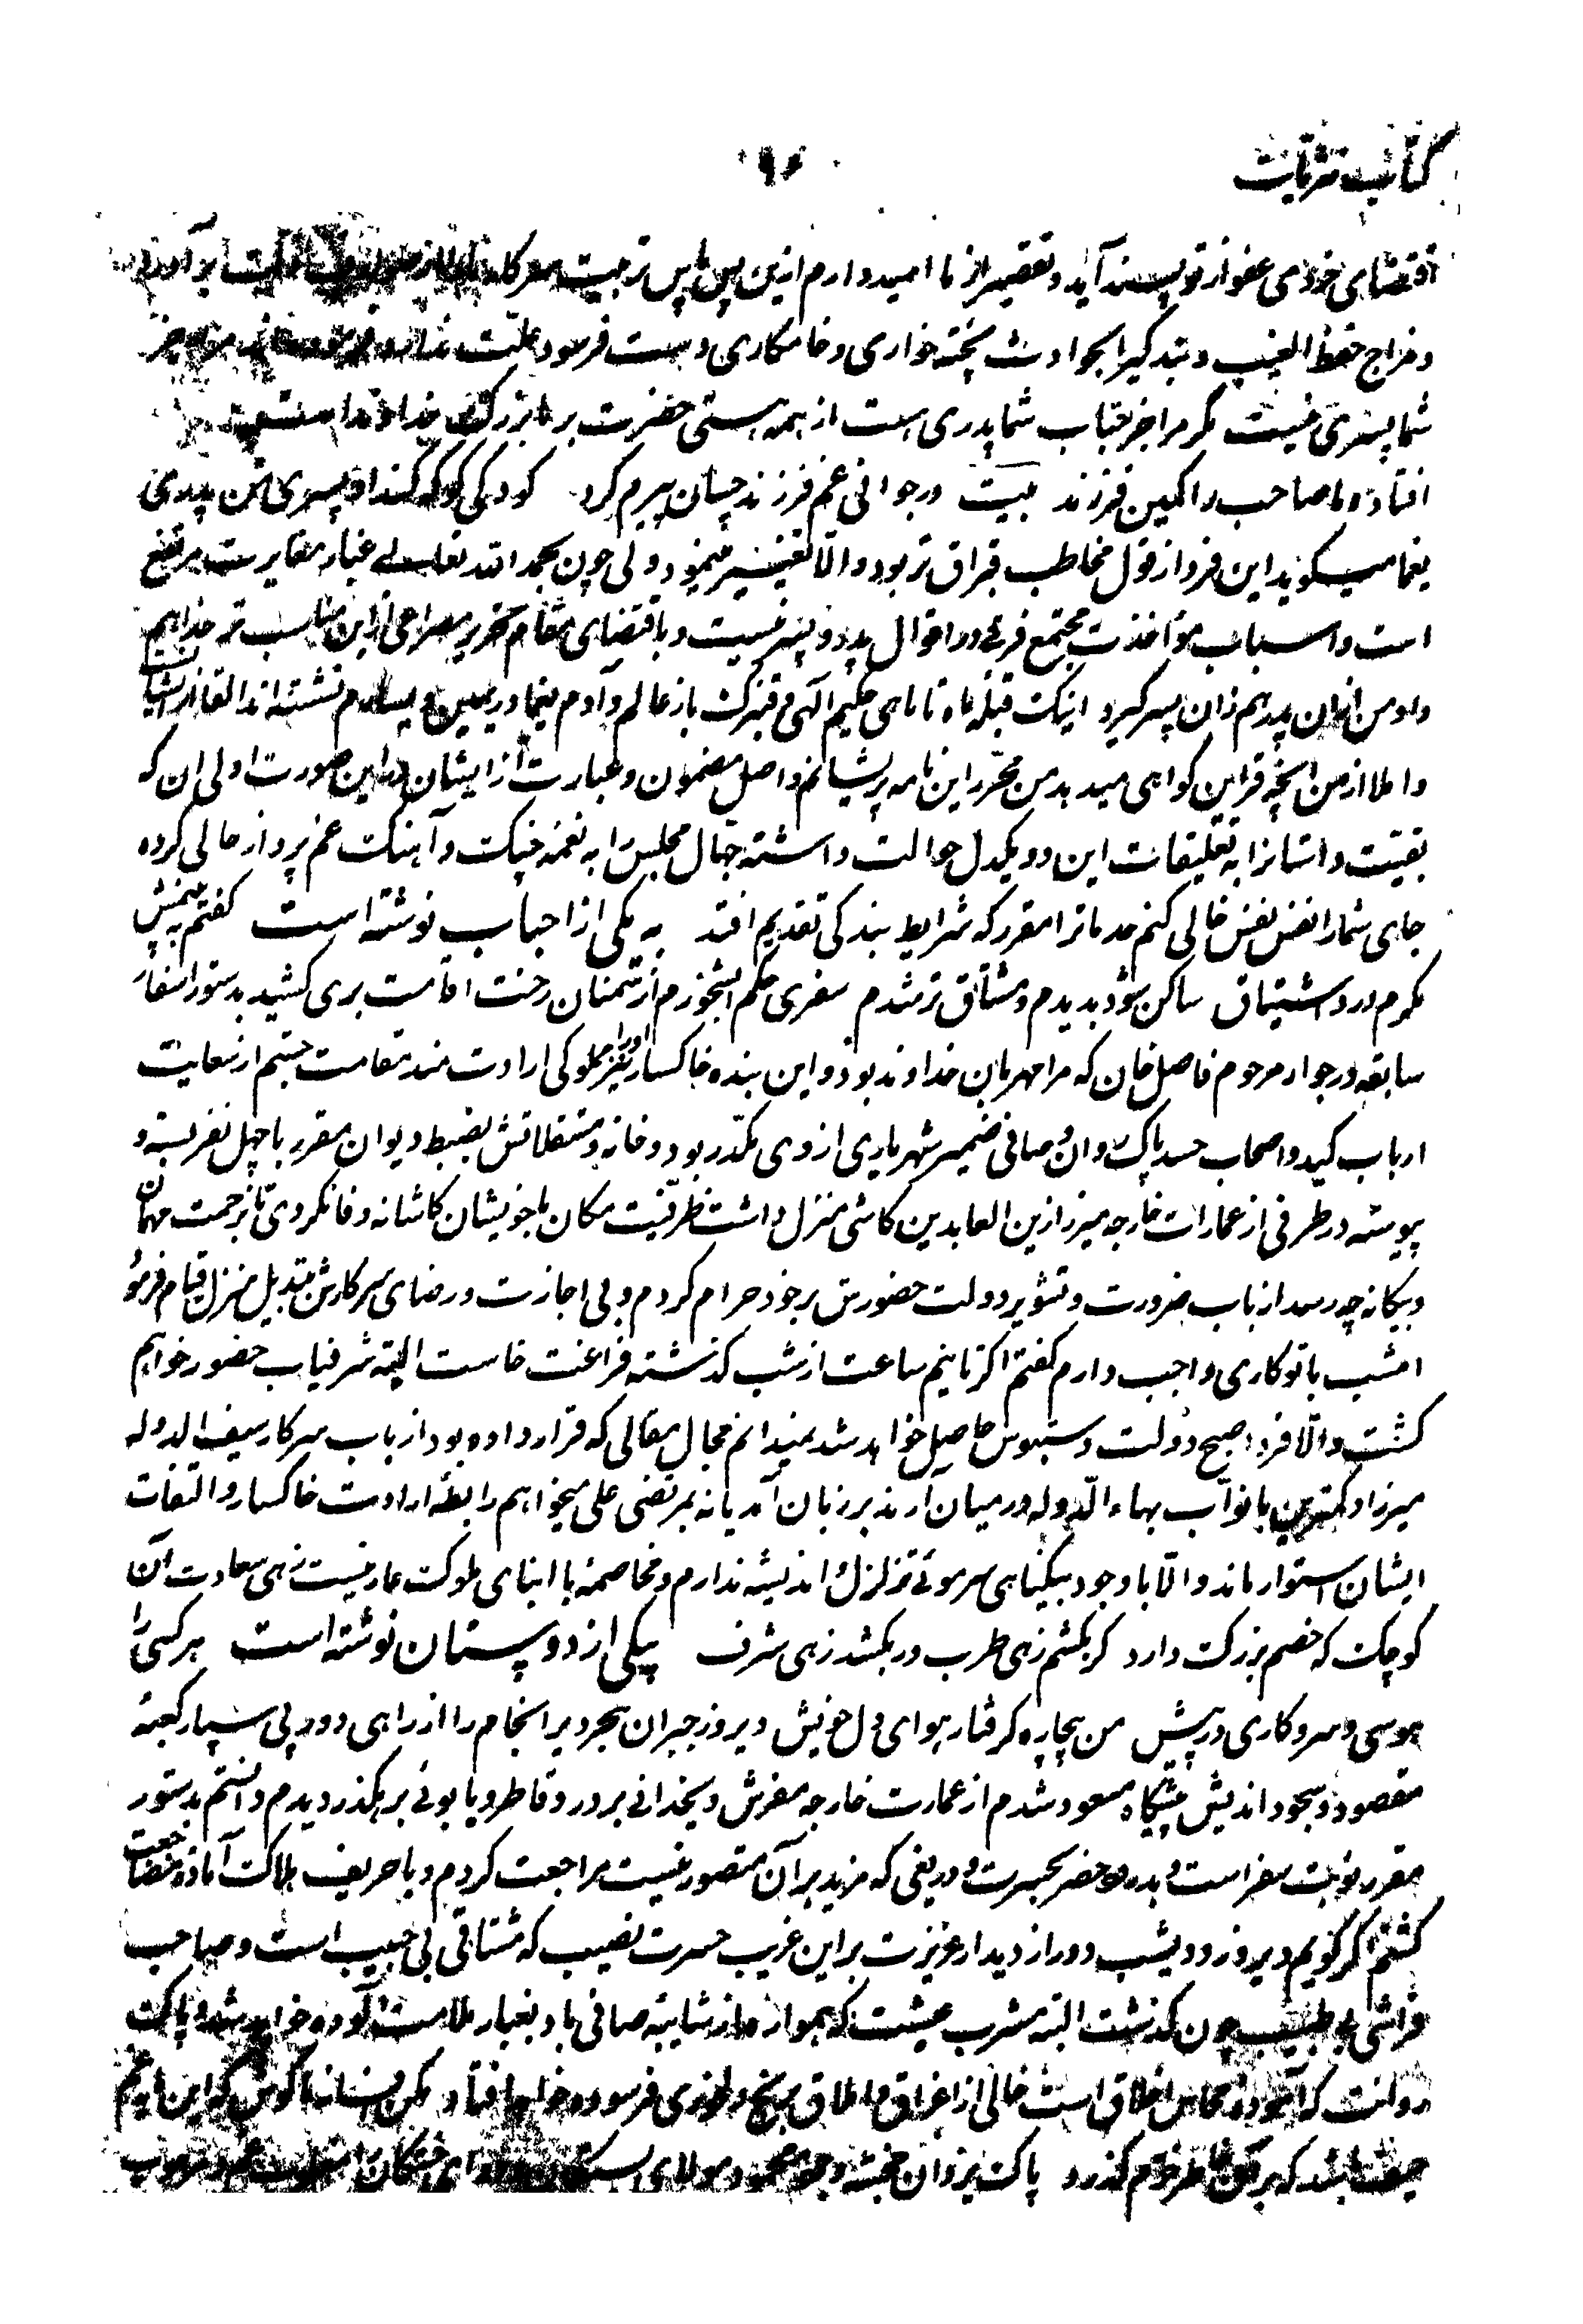 کتاب نثریات
۹۶
اقتضای خودی عفو از تو پسند آید و تقصیر از ما امیدوارم ازین پس پاس تربیت سرکار
و مزاج حفظ الغیب و بتدکیر ابجوادث پخته خواری و خامکاری دست فرسود علت
شما پسری نیست مکر مرا جز جناب شما پدری است از همه هستی حضرت بر ما بزرک
افتاده ما صاحب را کمین فرزند بیت در جوانی غم فرزند چسان پیرم کرد کودکی کو که کند او پسری من پدری
یغما میکوید این فرد از قول مخاطب قبراق تر بود و الا تغییر نمینمود ولی چون بحمد الله تعالی غبار مغایرت مرتفع
است و اسباب مؤاخذت مجتمع فرقی در احوال پدر و پسر نیست و باقتضای مقام تحریر مصراعی ازین مناسب تر خداهم
داد من ازان پدر هم زان پسر کیرد اینک قبله کاه تا نای حکیم آلهی و قنبرک باز عالم و آدم یغما در یمین و یسارم نشسته اند القا از ایشان
و املا از من ابخچه قراین کواهی میدهد من محرر این نامه پریشانم و اصل مضمون و عبارت از ایشان در این صورت اولی ان که
بقیت داستانرا به تعلیقات این دو یکدل حوالت داشته جمال مجلس را به نغمه چنک و آهنک غم پرداز حالی کرده
جای شما را نفس نفس خالی کنم خدماترا مقرر که شرایط بندکی تقدیم افتد به یکی از احباب نوشته است کفتم به بینمش
مکرم درد اشتیاق ساکن شود بدیدم و مشتاق تر شدم سفری حکم الشخوزم از تمنان رخت اقامت بری کشید بدستور اسفار
سابقه در جوار مرحوم فاضل خان که مرا مهربان خداوند بود و این بنده خاکسار او را نیز مملوکی ارادت مند مقامت جستم از سعایت
ارباب کید و اصحاب حسد پاک روان و صافی ضمیر شهریاری از وی مکدر بود و خانه و مستقلاتش بضبط دیوان مقرر با چهل نفر بسته و
پیوسته در طرفی از عمارات خارجه میرزا زین العابدین کاشی منزل داشت ظرفیت مکان با خویشان کاشانه وفا نکردی تا بزحمت مهمان
و بیکانه چه رسد از باب ضرورت و تشویر دولت حضورش بر خود حرام کردم و بی اجازت و رضای سرکارش تبدیل منزل قیام فرمود
امشب با تو کاری واجب دارم کفتم اکر تا نیم ساعت از شب کذشته فراغت خاست البته شرفیاب حضور خواهم
کشت و الا فردا صبح دولت دستبوس حاصل خواهد شد نمیدانم مجال مقالی که قرار داده بود از باب سرکار سیف الدوله
میرزا و کمترین با نواب بهاء الدوله در میان آرند بر زبان آمد یا نه بمرتضی علی میخواهم رابطه ارادت خاکسار و التفات
ایشان استوار ماند و الا با وجود بیکناهی سر موئی تزلزل و اندیشه ندارم و مخاصمه با ابنای ملوک عار نیست زهی سعادت آن
کوچک که خصم بزرک دارد کر بکشم زهی طرب ور بکشد زهی شرف بیکی از دوستان نوشته است هر کسی را
هوسی و سر و کاری در پیش من بیچاره کرفتار هوای دل خویش دیروز جبران هجر دیر انجام را از راهی دور پی سپار کعبه
مقصود و سجود اندیش پیشکاه مسعود شدم از عمارت خارجه مفرش و یخدانی بر در و قاطر و یابوئی بر هکذر دیدم دانستم بدستور
مقرر نوبت سفر است و بدرود حضر بحسرت و دریغی که مزید بر آن متصور نیست مراجعت کردم و با حریف هلاک آماده مضاجعت
کشتم اکر کویم دیروز و دیشب دور از دیدار عزیزت بر این غریب حسرت نصیب که مشتاقی بی حبیب است و صاحب
فراشی بی طبیب چون کذشت البته مشرب عیشت که همواره از شایبه صافی باد بغبار ملامت آلوده خواهد شد و پاک
روانت که آموده محاسن اخلاق است خالی از اغراق و اطلاق برنج دلوزی فرسوده خواهد افتاد مکن فسانه ما کوش که این نایم
حیف باشد که بر آن خاطر خرم کذرد پاک یزدان خجسته وجود محمود مولای